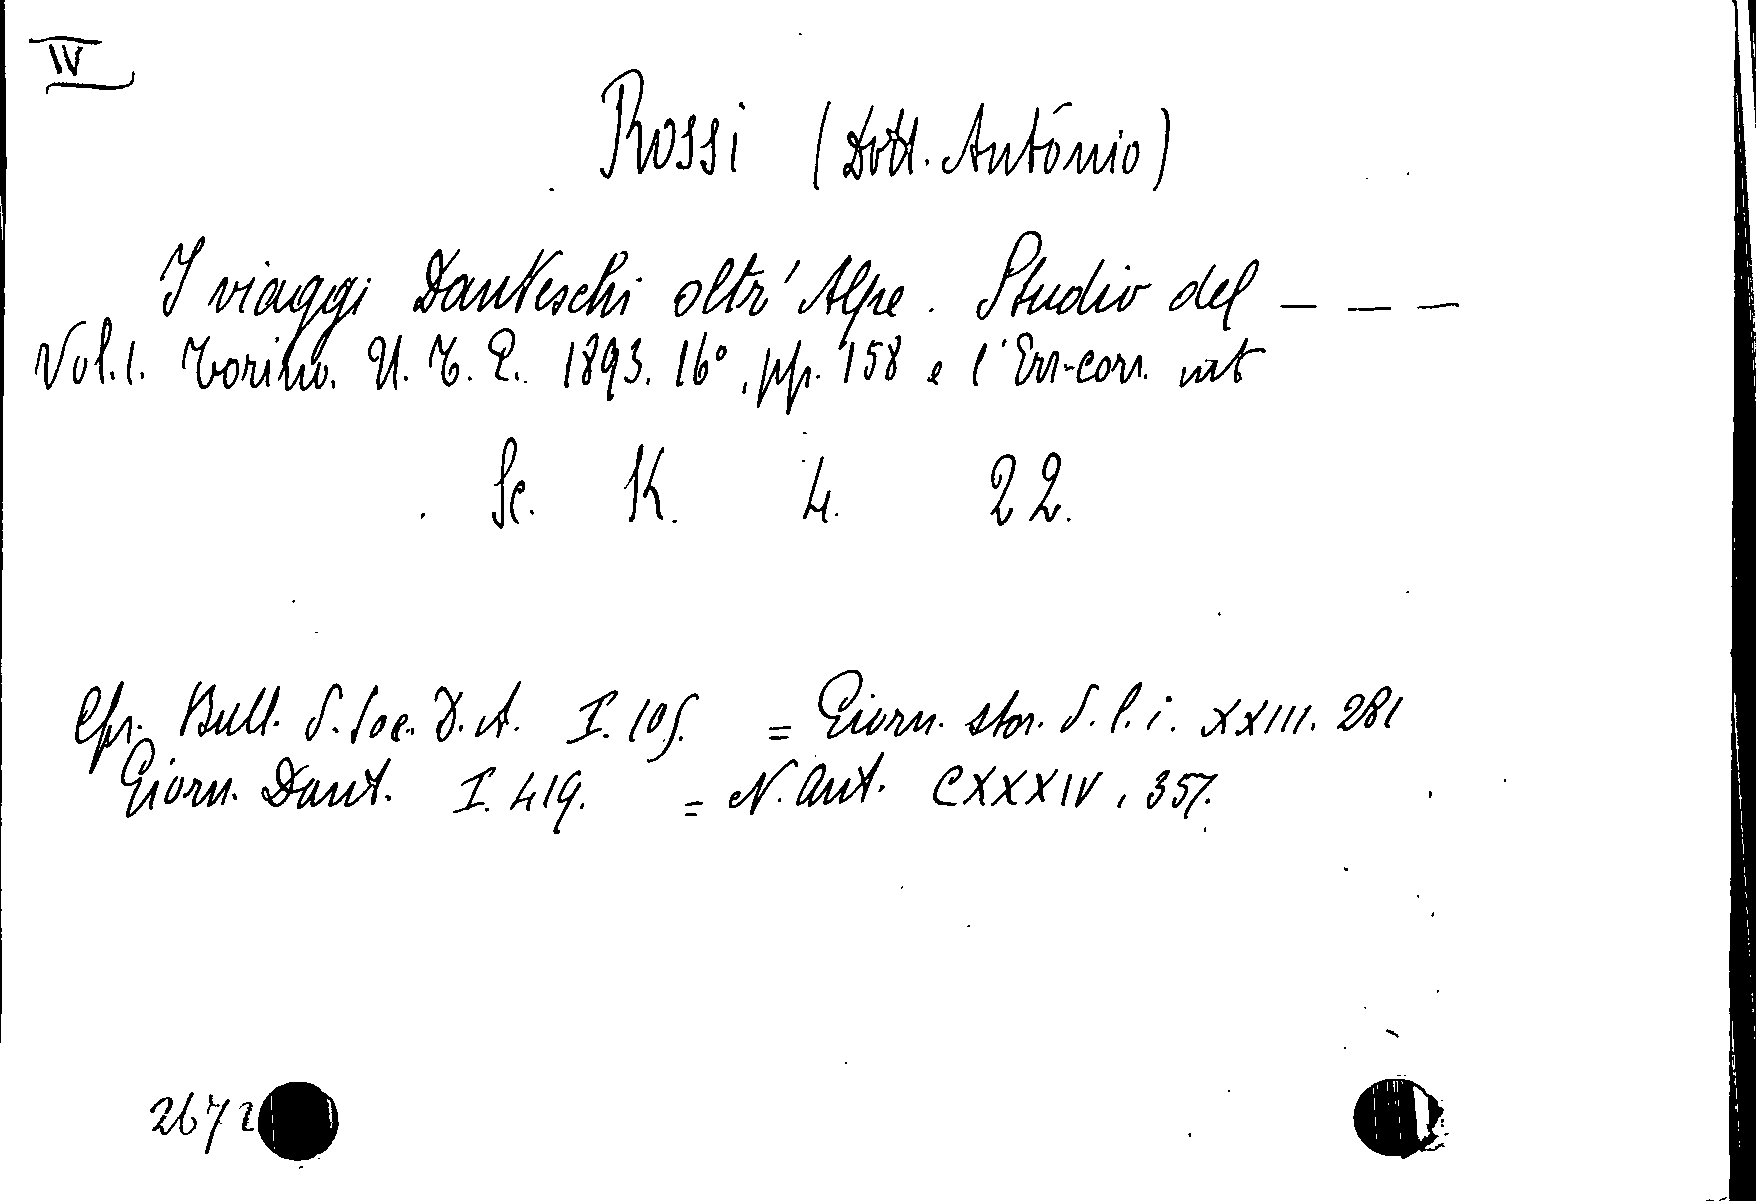 IV
Rossi (Dott. António)
I viaggi Danteschi oltr' Alpe. Studio del _ _ _
Vol. I. Torino. U. T. E. 1893. 16°, pp. 158 e l'Err-corr. int
Sc. K. 4. 22.
Cfr. Bull. d. Soc. D. it. I. 105. = Giorn. stor. d. l. i. XXIII. 281
Giorn. Dant. I. 419. = N. Ant. CXXXIV, 357.
2672